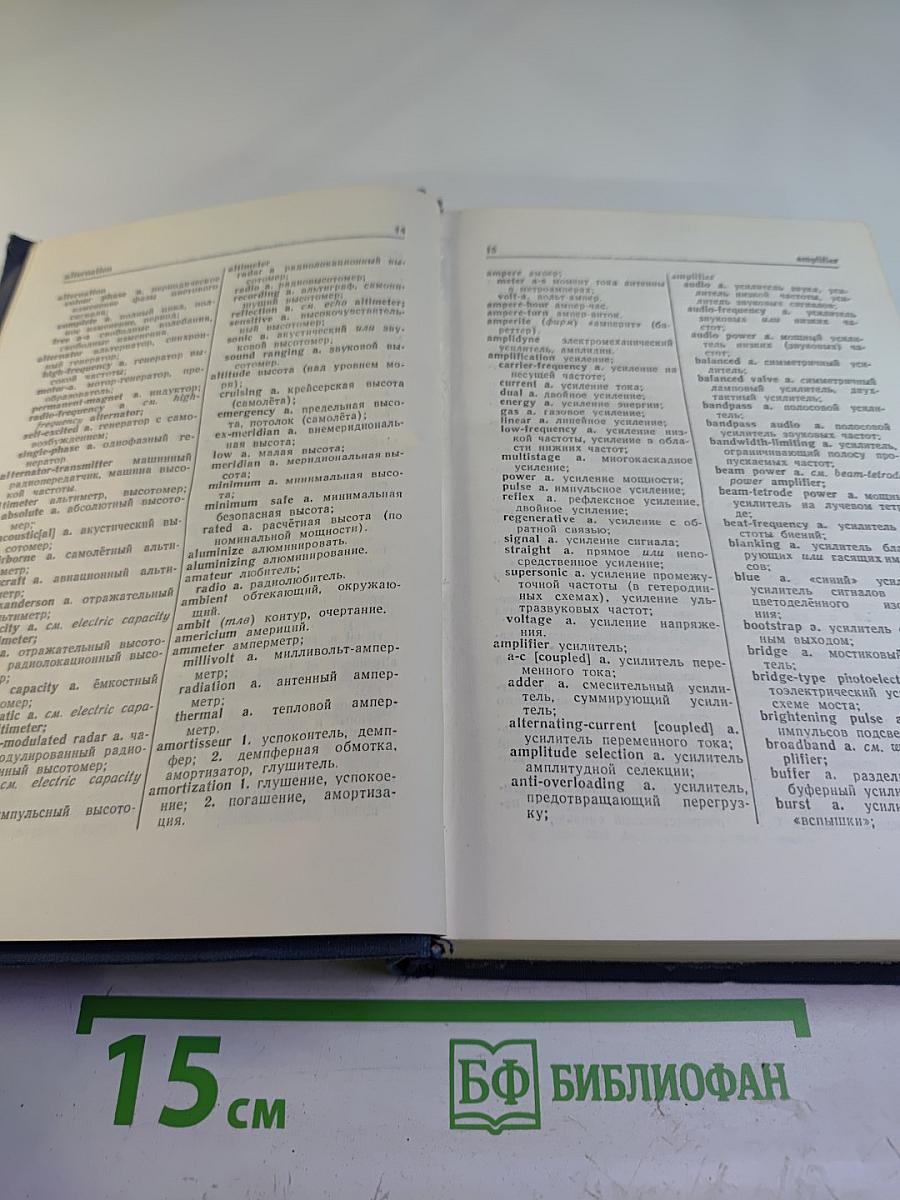 alternation
14
alternation
colour phase a. периодическое
complete a. полный цикл, пол-
ное изменение, период;
free a-s свободные колебания,
alternator альтернатор, синхрон-
ный генератор;
high-frequency a. генератор вы-
сокой частоты;
motor-a. мотор-генератор, пре-
образователь;
permanent-magnet a. индуктор;
radio-frequency a. см. high-
frequency alternator;
self-excited a. генератор с само-
возбуждением;
single-phase a. однофазный ге-
нератор
alternator-transmitter машинный
радиопередатчик, машина высо-
кой частоты.
timeter альтиметр, высотомер;
absolute a. абсолютный высото-
мер;
acoustic[al] a. акустический вы-
сотомер;
irborne a. самолётный альти-
метр;
craft a. авиационный альти-
метр;
xanderson a. отражательный
льтиметр;
city a. см. electric capacity
imeter;
a. отражательный высото-
радиолокационный высо-
р;
capacity a. ёмкостный
омер;
atic a. см. electric capa-
ltimeter;
-modulated radar a. ча-
одулированный радио-
нный высотомер;
см. electric capacity
мпульсный высото-
altimeter
radar a. радиолокационный вы-
сотомер;
radio a. радиовысотомер;
recording a. альтиграф, самопи-
шущий высотомер;
reflection a. см. echo altimeter;
sensitive a. высокочувствитель-
ный высотомер;
sonic a. акустический или зву-
ковой высотомер;
sound ranging a. звуковой вы-
сотомер.
altitude высота (над уровнем мо-
ря);
cruising a. крейсерская высота
(самолёта);
emergency a. предельная высо-
та, потолок (самолёта);
ex-meridian a. внемеридиональ-
ная высота;
low a. малая высота;
meridian a. меридиональная вы-
сота;
minimum a. минимальная высо-
та;
minimum safe a. минимальная
безопасная высота;
rated a. расчётная высота (по
номинальной мощности).
aluminize алюминировать.
aluminizing алюминирование.
amateur любитель;
radio a. радиолюбитель.
ambient обтекающий, окружаю-
щий.
ambit (тлв) контур, очертание.
americium америций.
ammeter амперметр;
millivolt a. милливольт-ампер-
метр;
radiation a. антенный ампер-
метр;
thermal a. тепловой ампер-
метр.
amortisseur 1. успокоитель, демп-
фер; 2. демпферная обмотка,
амортизатор, глушитель.
amortization 1. глушение, успокое-
ние; 2. погашение, амортиза-
ция.
15
amplifier
ampere ампер;
meter a-s момент тока антенны
в метроамперах;
volt-a. вольт-ампер.
ampere-hour ампер-час.
ampere-turn ампер-виток.
amperite (фирм) «амперит» (ба-
реттер).
amplidyne электромеханический
усилитель, амплидин.
amplification усиление;
carrier-frequency a. усиление на
несущей частоте;
current a. усиление тока;
dual a. двойное усиление;
energy a. усиление энергии;
gas a. газовое усиление;
linear a. линейное усиление;
low-frequency a. усиление низ-
кой частоты, усиление в обла-
сти нижних частот;
multistage a. многокаскадное
усиление;
power a. усиление мощности;
pulse a. импульсное усиление;
reflex a. рефлексное усиление,
двойное усиление;
regenerative a. усиление с об-
ратной связью;
signal a. усиление сигнала;
straight a. прямое или непо-
средственное усиление;
supersonic a. усиление промежу-
точной частоты (в гетеродин-
ных схемах), усиление уль-
тразвуковых частот;
voltage a. усиление напряже-
ния.
amplifier усилитель;
a-c [coupled] a. усилитель пере-
менного тока;
adder a. смесительный усили-
тель, суммирующий усили-
тель;
alternating-current [coupled] a.
усилитель переменного тока;
amplitude selection a. усилитель
амплитудной селекции;
anti-overloading a. усилитель,
предотвращающий перегруз-
ку;
amplifier
audio a. усилитель звука, уси-
литель низкой частоты, уси-
литель звуковых сигналов;
audio-frequency a. усилитель
звуковых или низких ча-
стот;
audio power a. мощный усили-
тель низких (звуковых) ча-
стот;
balanced a. симметричный уси-
литель;
balanced valve a. симметричный
ламповый усилитель, двух-
тактный усилитель;
bandpass a. полосовой усили-
тель;
bandpass audio a. полосовой
усилитель звуковых частот;
bandwidth-limiting a. усилитель,
ограничивающий полосу про-
пускаемых частот;
beam power a. см. beam-tetrode
power amplifier;
beam-tetrode power a. мощны
усилитель на лучевом тетр
де;
beat-frequency a. усилитель
стоты биений;
blanking a. усилитель бла
рующих или гасящих им
сов;
blue a. «синий» усил
усилитель сигналов
цветоделённого изо
ния;
bootstrap a. усилитель
ным выходом;
bridge a. мостиковый
тель;
bridge-type photoelect
тоэлектрический ус
схеме моста;
brightening pulse a
импульсов подсве
broadband a. см. w
plifier;
buffer a. раздел
буферный усили
burst a. усили
«вспышки»;
15 см
БФ БИБЛИОФАН